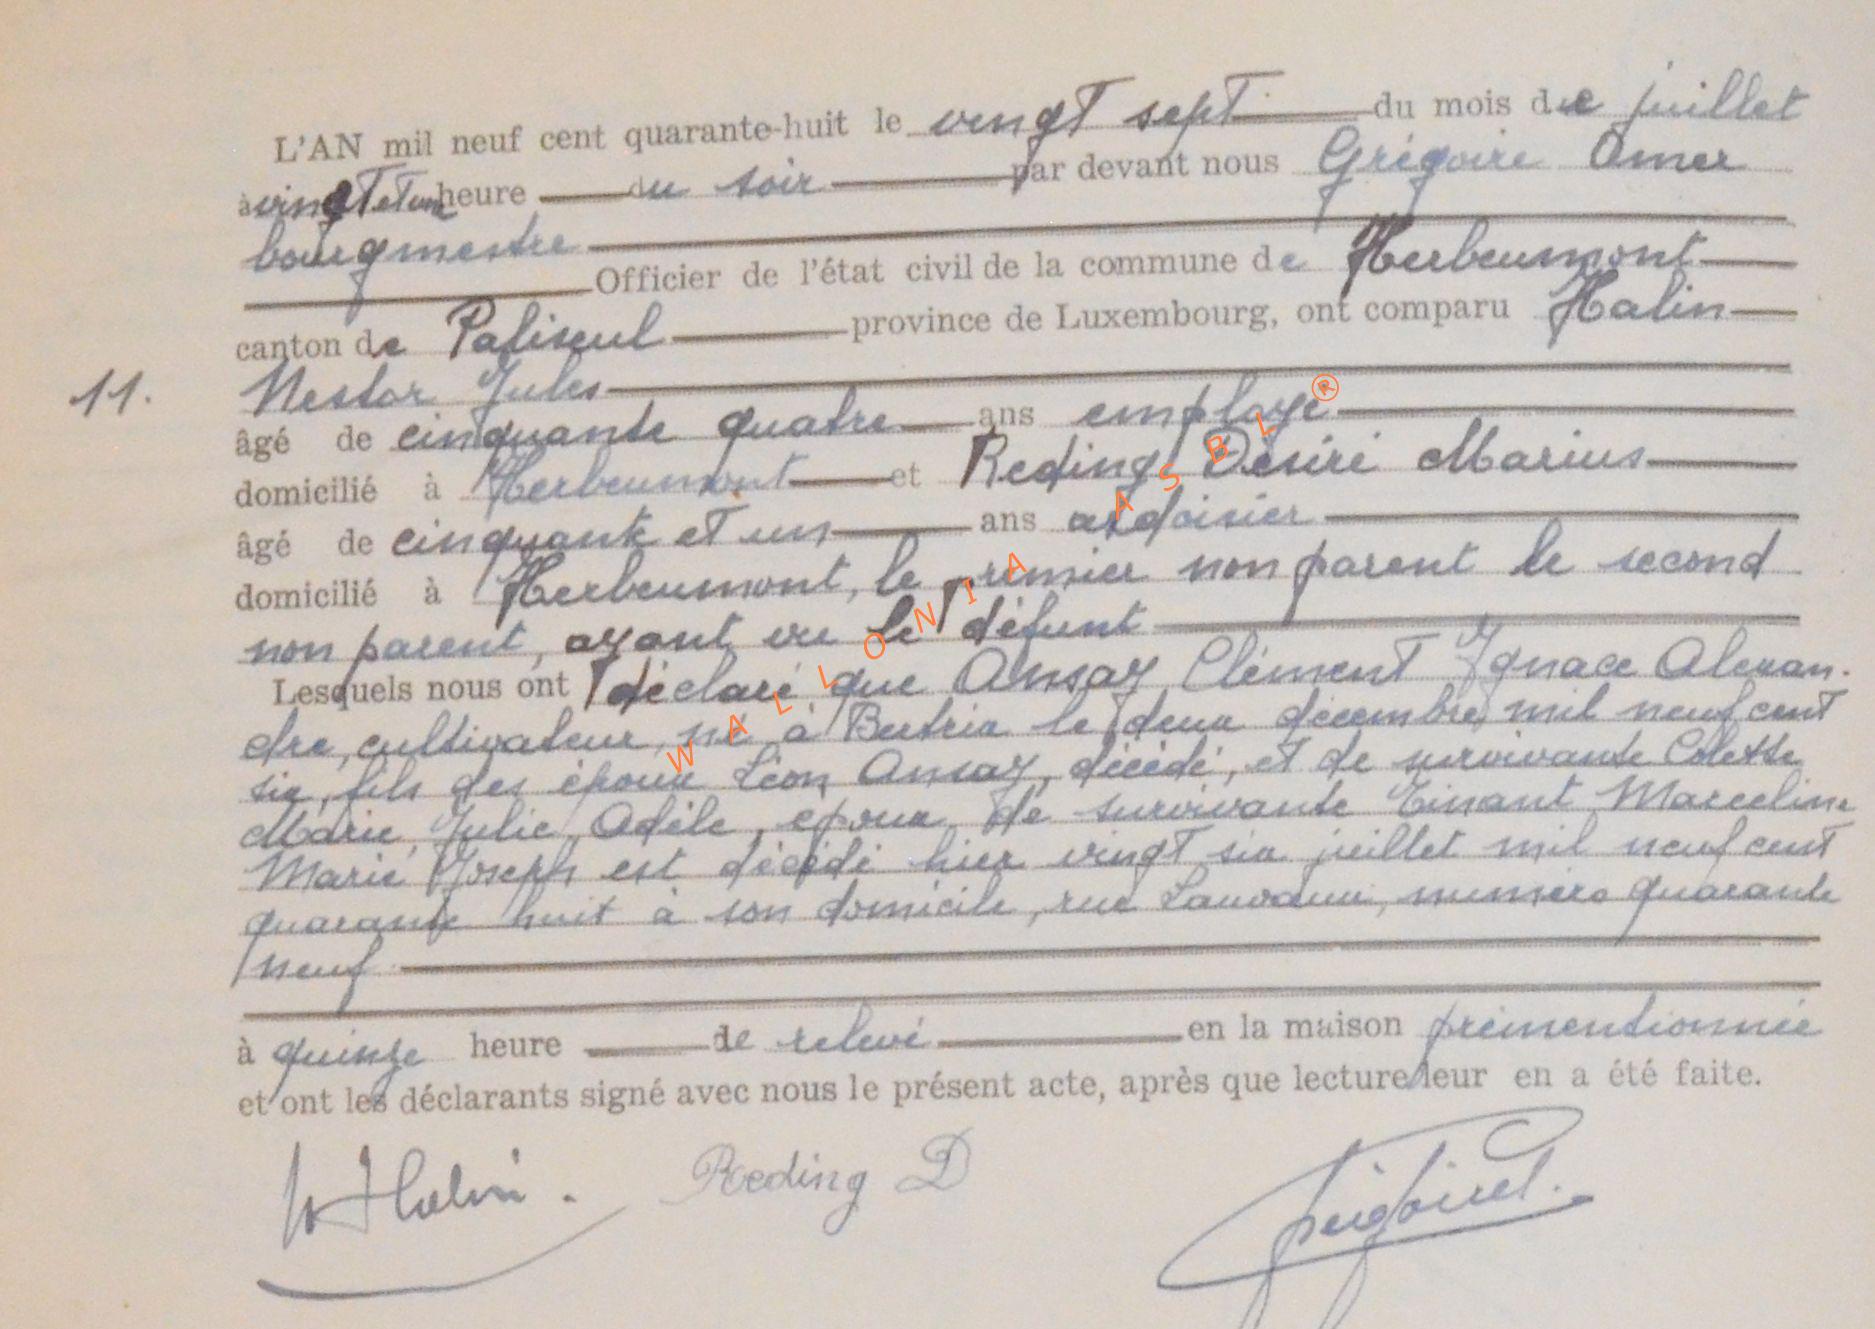 L'AN mil neuf cent quarante-huit le vingt sept du mois de juillet
à vingt et une heure du soir par devant nous Grégoire Omer
bourgmestre
Officier de l'état civil de la commune de Herbeumont
canton de Paliseul province de Luxembourg, ont comparu Halin
11. Nestor Jules
âgé de cinquante quatre ans employé
domicilié à Herbeumont et Reding Désiré Marius
âgé de cinquante et un ans ardoisier
domicilié à Herbeumont, le premier non parent le second
non parent, ayant vu le défunt
Lesquels nous ont déclaré que Ansay Clément Ignace Alexan-
dre, cultivateur, né à Bertrix le deux décembre mil neuf cent
six, fils des époux Léon Ansay, décédé, et de survivante Colette
Marie Julie Adèle, époux de survivante Tinant Marceline
Marie Joseph est décédé hier vingt six juillet mil neuf cent
quarante huit à son domicile, rue Lauvaux, numéro quarante
neuf
à quinze heure de relevé en la maison prémentionnée
et ont les déclarants signé avec nous le présent acte, après que lecture leur en a été faite.
N Halin. Reding D
WALLONIA ASBL ®